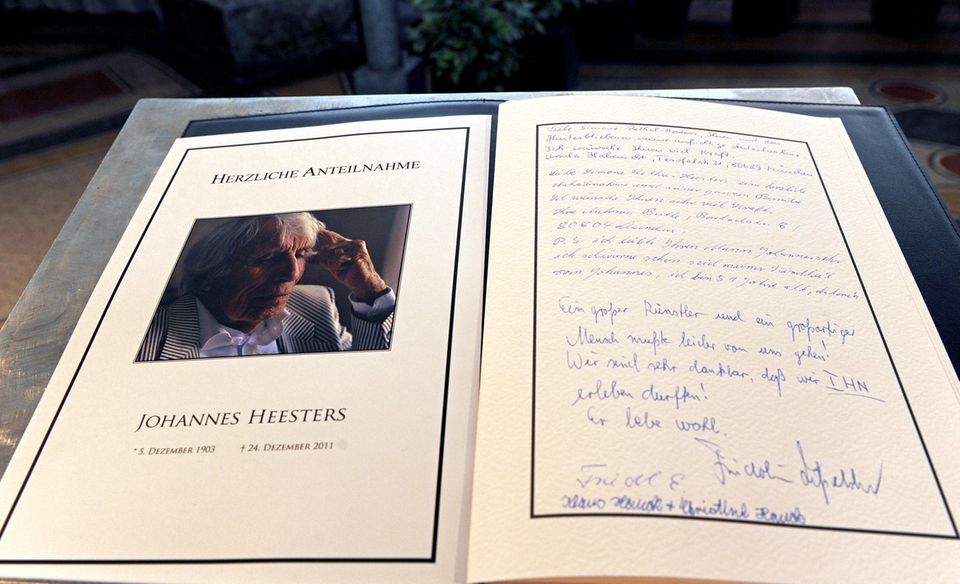 HERZLICHE ANTEILNAHME
JOHANNES HEESTERS
* 5. DEZEMBER 1903 † 24. DEZEMBER 2011
Liebe Simone Rethel-Heesters, Ihnen und den
Hinterbliebenen meine aufrichtige Anteilnahme
Ich wünsche Ihnen viel Kraft.
Ursula 80689 München
Liebe Simone Rethel Heesters eine herzliche
Anteilnahme und seiner ganzen Familie
Ich wünsche Ihnen sehr viel Kraft,
Ihre
P.S. ich liebte Ihren Mann Johannes sehr
ich schwärme schon seit meiner Kindheit
vom Johannes, ich bin 51 Jahre alt,
Ein großer Künstler und ein großartiger
Mensch mußte leider von uns gehen!
Wir sind sehr dankbar, daß wir IHN
erleben durften!
Er lebe wohl.
Fridolin
Friedl E
+ Christine